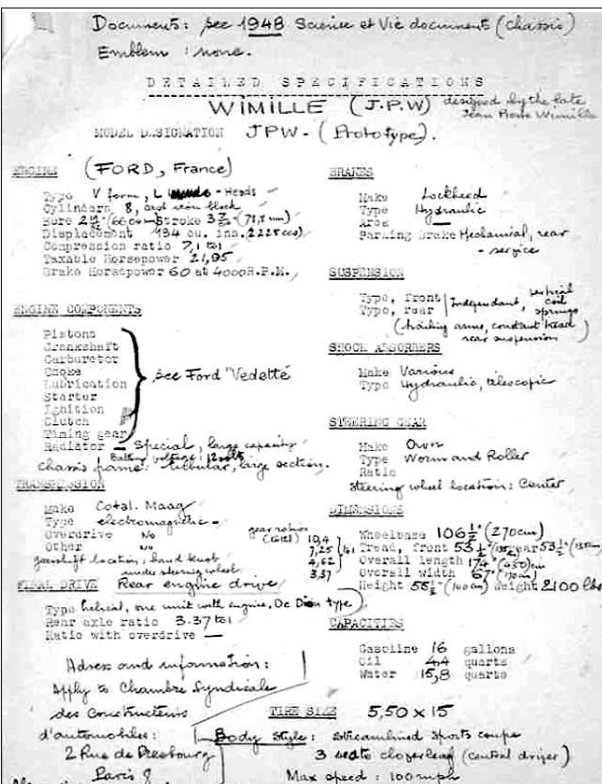 Documents: see 1948 Science et Vie document (chassis)
Emblem : none.
DETAILED SPECIFICATIONS
WIMILLE (J.P.W) designed by the late
Jean Pierre Wimille
MODEL DESIGNATION JPW - (Prototype).
ENGINE (FORD, France)
Type V form, L - Heads
Cylinders 8, cast iron block
Bore (66 mm) Stroke
Displacement 134 cu. ins. (2225 cc)
Compression ratio 7,1 to 1
Taxable Horsepower 21,95
Brake Horsepower 60 at 4000 R.P.M.
ENGINE COMPONENTS
Pistons
Crankshaft
Carburetor
Choke
Lubrication
Starter
Ignition
Clutch
Timing gear
see Ford "Vedette
Radiator - Special, large capacity
Battery voltage: 12 volts
Chassis frame: tubular, large section.
TRANSMISSION
Make Cotal. Maag
Type electromagnetic -
Overdrive No
Other No
gear ratios
10,4
7,25
4,62
3,37
gearshift location: hand knob
under steering wheel
FINAL DRIVE Rear engine drive
Type helical, one unit with engine, De Dion type)
Rear axle ratio 3.37 to 1
Ratio with overdrive —
Adress and information:
Apply to Chambre Syndicale
des Constructeurs
d'automobiles:
2 Rue de Presbourg
Paris 8
BRAKES
Make Lockheed
Type Hydraulic
Area —
Parking Brake Mechanical, rear
- service
SUSPENSION
Type, front
Type, rear
Independant, vertical
coil
springs
(trailing arms, constant head
rear suspension)
SHOCK ABSORBERS
Make Various
Type Hydraulic, telescopic
STEERING GEAR
Make Own
Type Worm and Roller
Ratio
Steering wheel location: Center
DIMENSIONS
Wheelbase 106 ½" (270cm)
Tread, front 53 ½" rear 53 ½"
Overall length 174" (450)cm
Overall width 67" (170cm)
Height 55 ½" (140cm) Weight 2100 lbs
CAPACITIES
Gasoline 16 gallons
Oil 4,4 quarts
Water 15,8 quarts
TIRE SIZE 5,50 x 15
Body Style: streamlined sports coupe
3 seats cloverleaf (central driver)
Max speed : 100 mph